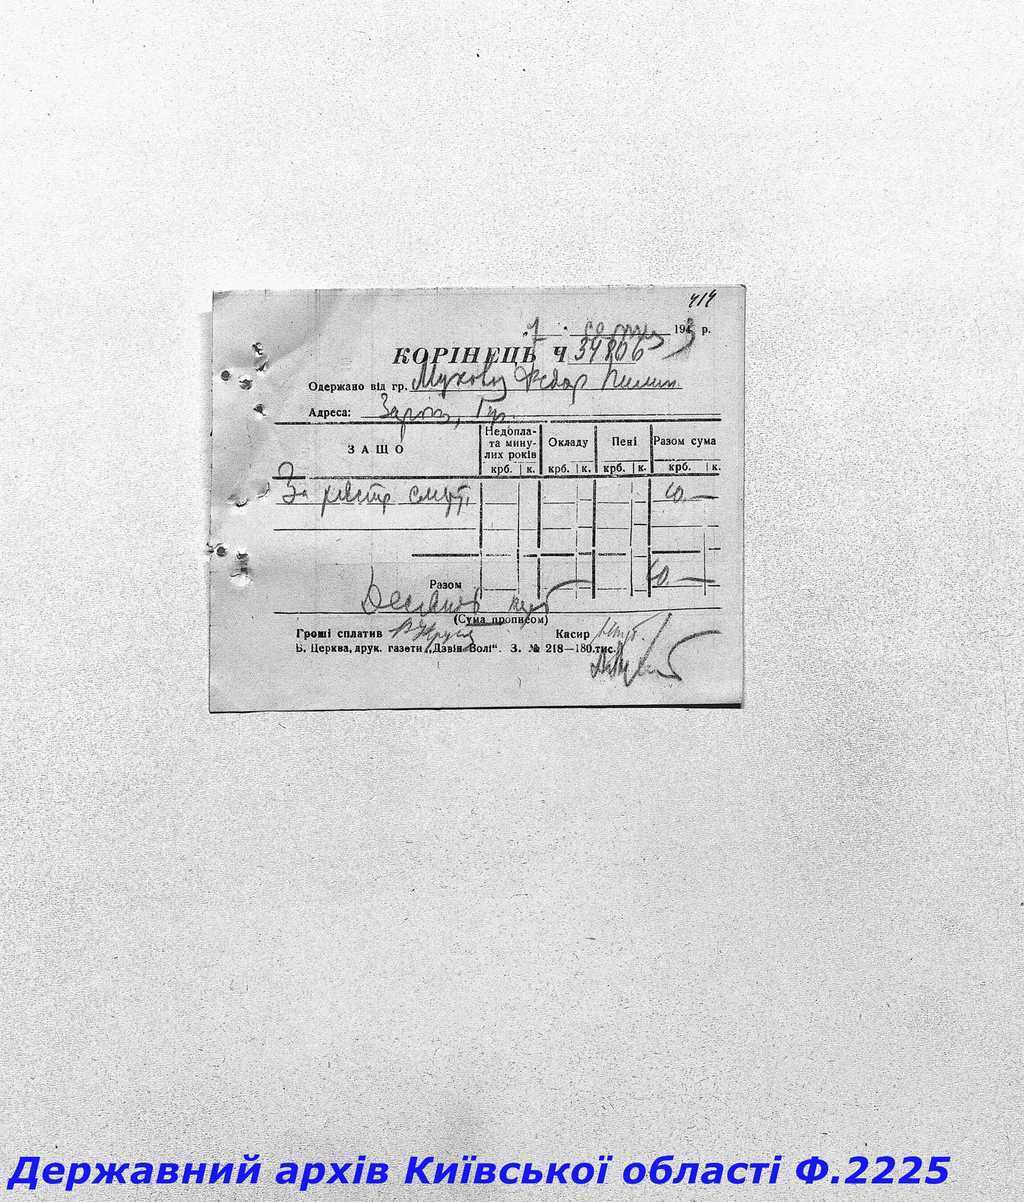 414
7 1943 р.
КОРІНЕЦЬ Ч 34806
Одержано від гр. Федор Пилип.
Адреса:
ЗА ЩО
Недопла-
та мину-
лих років
Окладу
Пені
Разом сума
крб. к. крб. к. крб. к. крб. к.
За реєстр смерт. 10.—
Разом 10.—
Десять карб
(Сума прописом)
Гроші сплатив Касир
Б. Церква, друк. газети „Дзвін Волі“. З. № 218—180.тис.
Державний архів Київської області Ф.2225